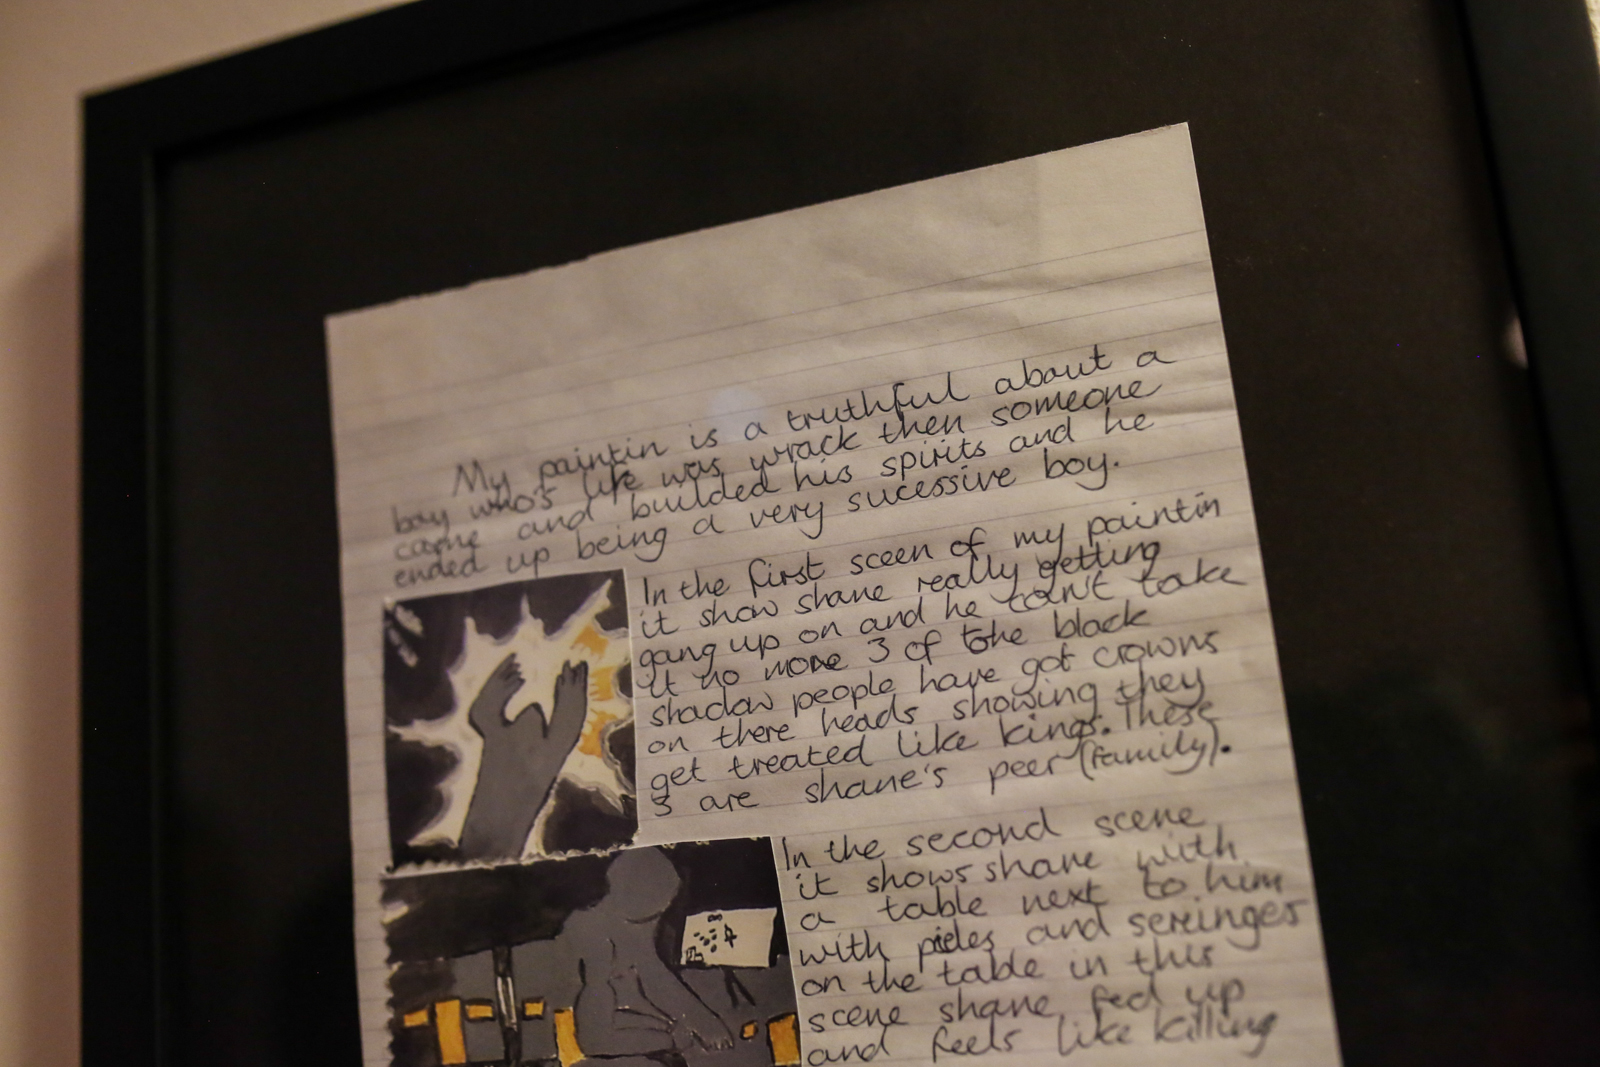 My paintin is a truthful about a
boy who's life was wrack then someone
came and builded his spirits and he
ended up being a very sucessive boy.
In the first sceen of my paintin
it show shane really getting
gang up on and he can't take
it no more 3 of the black
shadow people have got crowns
on there heads showing they
get treated like kings. These
3 are shane's peer (family).
In the second scene
it shows shane with
a table next to him
with and sereinges
on the table in this
scene shane fed up
and feels like killing